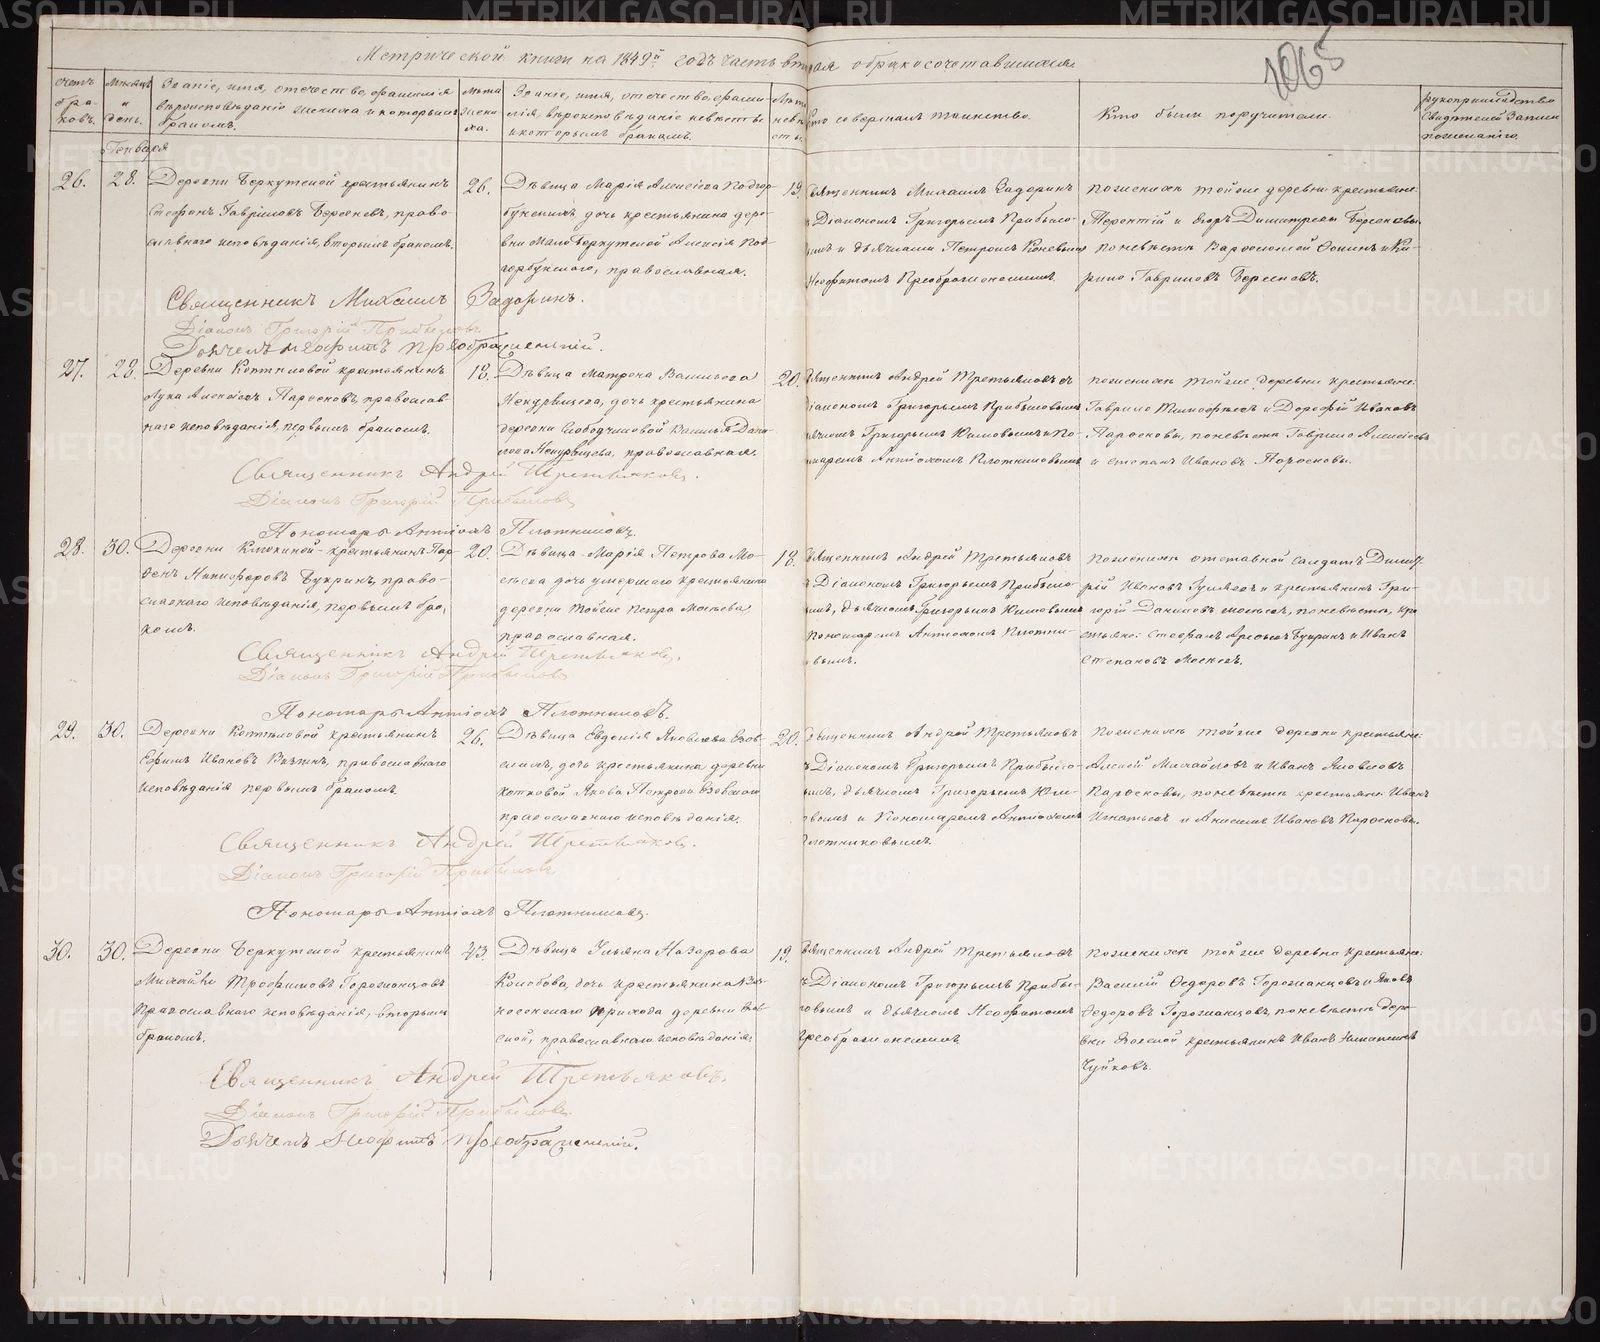 Метрической книги на 1849й годъ часть вторая о бракосочетавшихся
1065
Счетъ браковъ.
Мѣсяцъ и день.
Званіе, имя, отечество, фамилія
вѣроисповѣданіе жениха и которымъ
бракомъ.
Лѣта жениха.
Званіе, имя, отечество, фамилія
вѣроисповѣданіе невѣсты
и которымъ бракомъ.
Лѣта невѣсты.
Кто совершалъ таинство.
Кто были поручители.
рукоприкладство
Свидѣтелей Записи
по желанію.
Генваря
26.
28.
Деревни Беркутской крестьянинъ
Стефанъ Гавриловъ Берсеневъ, право-
славнаго исповѣданія, вторымъ бракомъ.
26.
Дѣвица Марія Алексіева Подгор-
бунскихъ, дочь крестьянина дере-
вни Малоберкутской Алексія Под-
горбунскаго, православная.
19.
Священникъ Михаилъ Задоринъ
съ Діакономъ Григорьемъ Прибыло-
вымъ и дьячками Петромъ Коневымъ
Неофитомъ Преображенскимъ.
по женихѣ той же деревни крестьяне:
Терентій и Егоръ Димитріевы Берсеневы
по невѣстѣ Варфоломей Осипъ и Ки-
рило Гавриловъ Берсеневъ.
Священникъ Михаилъ Задоринъ.
Діаконъ Григорій Прибыловъ
Дьячекъ Неофитъ Преображенскій.
27.
28.
Деревни Коптяловой крестьянинъ
Лука Алексѣевъ Парфеновъ, православ-
наго исповѣданія, первымъ бракомъ.
18.
Дѣвица Матрона Васильева
Некурящева, дочь крестьянина
деревни Слободчиковой Василья Дани-
лова Некурящева, православная.
20.
Священникъ Андрей Третьяковъ съ
Діакономъ Григорьемъ Прибыловымъ
дьячкомъ Григорьемъ Климовымъ и По-
номаремъ Антіохомъ Плотниковымъ
по женихѣ той же деревни крестьяне:
Гаврило Тимофѣевъ и Дорофѣй Ивановъ
Парфеновы, по невѣстѣ Гаврило Алексѣевъ
и Степанъ Ивановъ Парфеновы.
Священникъ Андрей Третьяковъ.
Діаконъ Григорій Прибыловъ
Пономарь Антіохъ Плотниковъ.
28.
30.
Деревни Клюкиной крестьянинъ Пар-
фенъ Никифоровъ Букринъ, право-
славнаго исповѣданія, первымъ бра-
комъ.
20.
Дѣвица Марія Петрова Мо-
сѣева дочь умершаго крестьянина
деревни той же Петра Мосѣева
православная.
18.
Священникъ Андрей Третьяковъ
съ Діакономъ Григорьемъ Прибыло-
вымъ, дьячкомъ Григорьемъ Климовымъ
Пономаремъ Антіохомъ Плотни-
ковымъ.
по женихѣ отставной солдатъ Димит-
рій Ивановъ Гуляевъ и крестьянинъ Гри-
горій Даниловъ Мосѣевъ, по невѣстѣ, кре-
стьяне: Стефанъ Арефьевъ Букринъ и Иванъ
Степановъ Мосѣевъ.
Священникъ Андрей Третьяковъ.
Діаконъ Григорій Прибыловъ
Пономарь Антіохъ Плотниковъ.
29.
30.
Деревни Коптяловой крестьянинъ
Ефимъ Ивановъ Вяткинъ, православнаго
исповѣданія первымъ бракомъ.
26.
Дѣвица Евдокія Яковлева Езов-
скихъ, дочь крестьянина деревни
Котковой Якова Петрова Езовскаго
православнаго исповѣданія.
20.
Священникъ Андрей Третьяковъ
съ Діакономъ Григорьемъ Прибыло-
вымъ, дьячкомъ Григорьемъ Кли-
мовымъ и Пономаремъ Антіохомъ
Плотниковымъ.
по женихѣ той же деревни крестьяне:
Алексѣй Михайловъ и Иванъ Яковлевъ
Парфеновы, по невѣстѣ крестьяне: Иванъ
Игнатьевъ и Анисимъ Ивановъ Парфеновы.
Священникъ Андрей Третьяковъ.
Діаконъ Григорій Прибыловъ
Пономарь Антіохъ Плотниковъ.
30.
30.
Деревни Беркутской крестьянинъ
Михайло Трофимовъ Горожанцовъ
Православнаго исповѣданія, вторымъ
бракомъ.
43.
Дѣвица Ульяна Назарова
Колобова, дочь крестьянина Воз-
несенскаго прихода деревни
православнаго исповѣданія.
19.
Священникъ Андрей Третьяковъ
съ Діакономъ Григорьемъ Прибы-
ловымъ и дьячкомъ Неофитомъ
Преображенскимъ.
по женихѣ той же деревни крестьяне:
Василій Федоровъ Горожанцовъ и Яковъ
Федоровъ Горожанцовъ, по невѣстѣ дере-
вни крестьянинъ Иванъ Никитинъ
Чуйковъ.
Священникъ Андрей Третьяковъ.
Діаконъ Григорій Прибыловъ
Дьячекъ Неофитъ Преображенскій.
METRIKI.GASO-URAL.RU